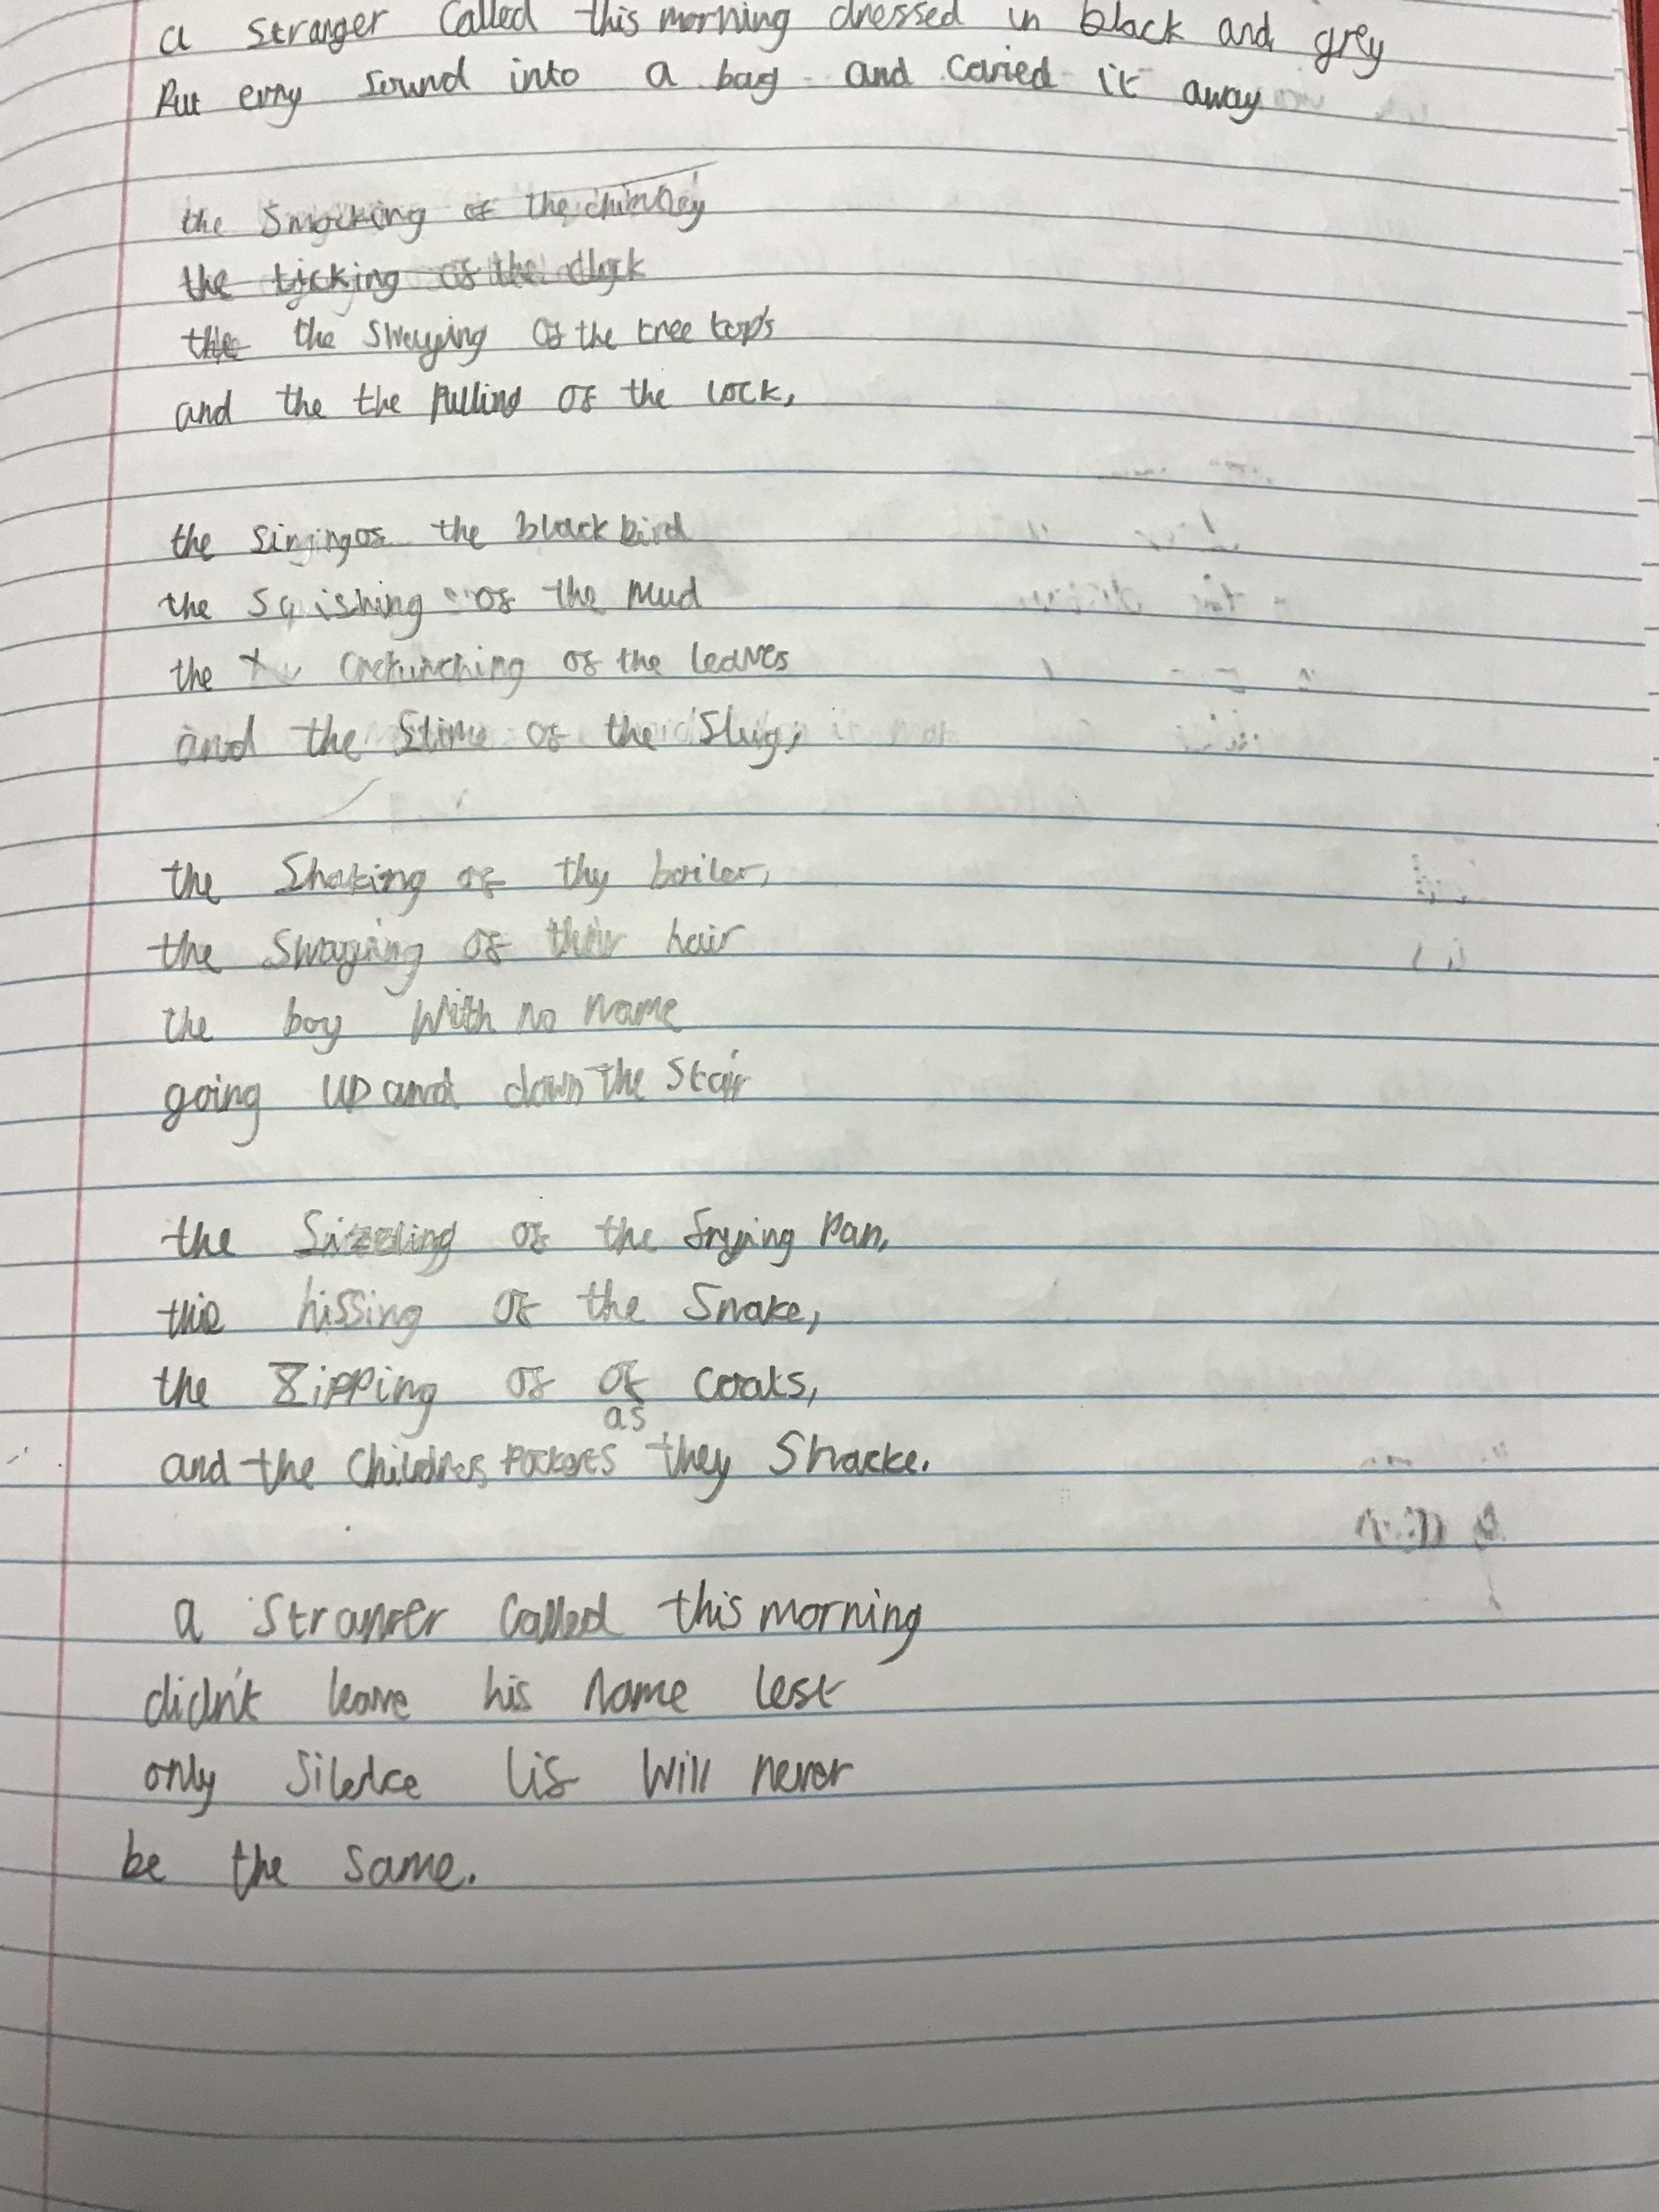 a stranger called this morning dressed in black and grey
Put evry sound into a bag and caried it away
the smocking of the chimney
the ticking of the clock
the the swaying of the tree top's
and the the pulling of the lock,
the singing of the black bird
the sqishing of the mud
the crunching of the leaves
and the slime of the slug,
the shaking of thy boiler,
the swaying of their hair
the boy with no name
going up and down the stair
the sizzling of the frying pan,
the hissing of the snake,
the zipping of of coats,
as
and the childres pockets they shacke.
a stranger called this morning
didn't leave his name left
only silence lif will never
be the same.